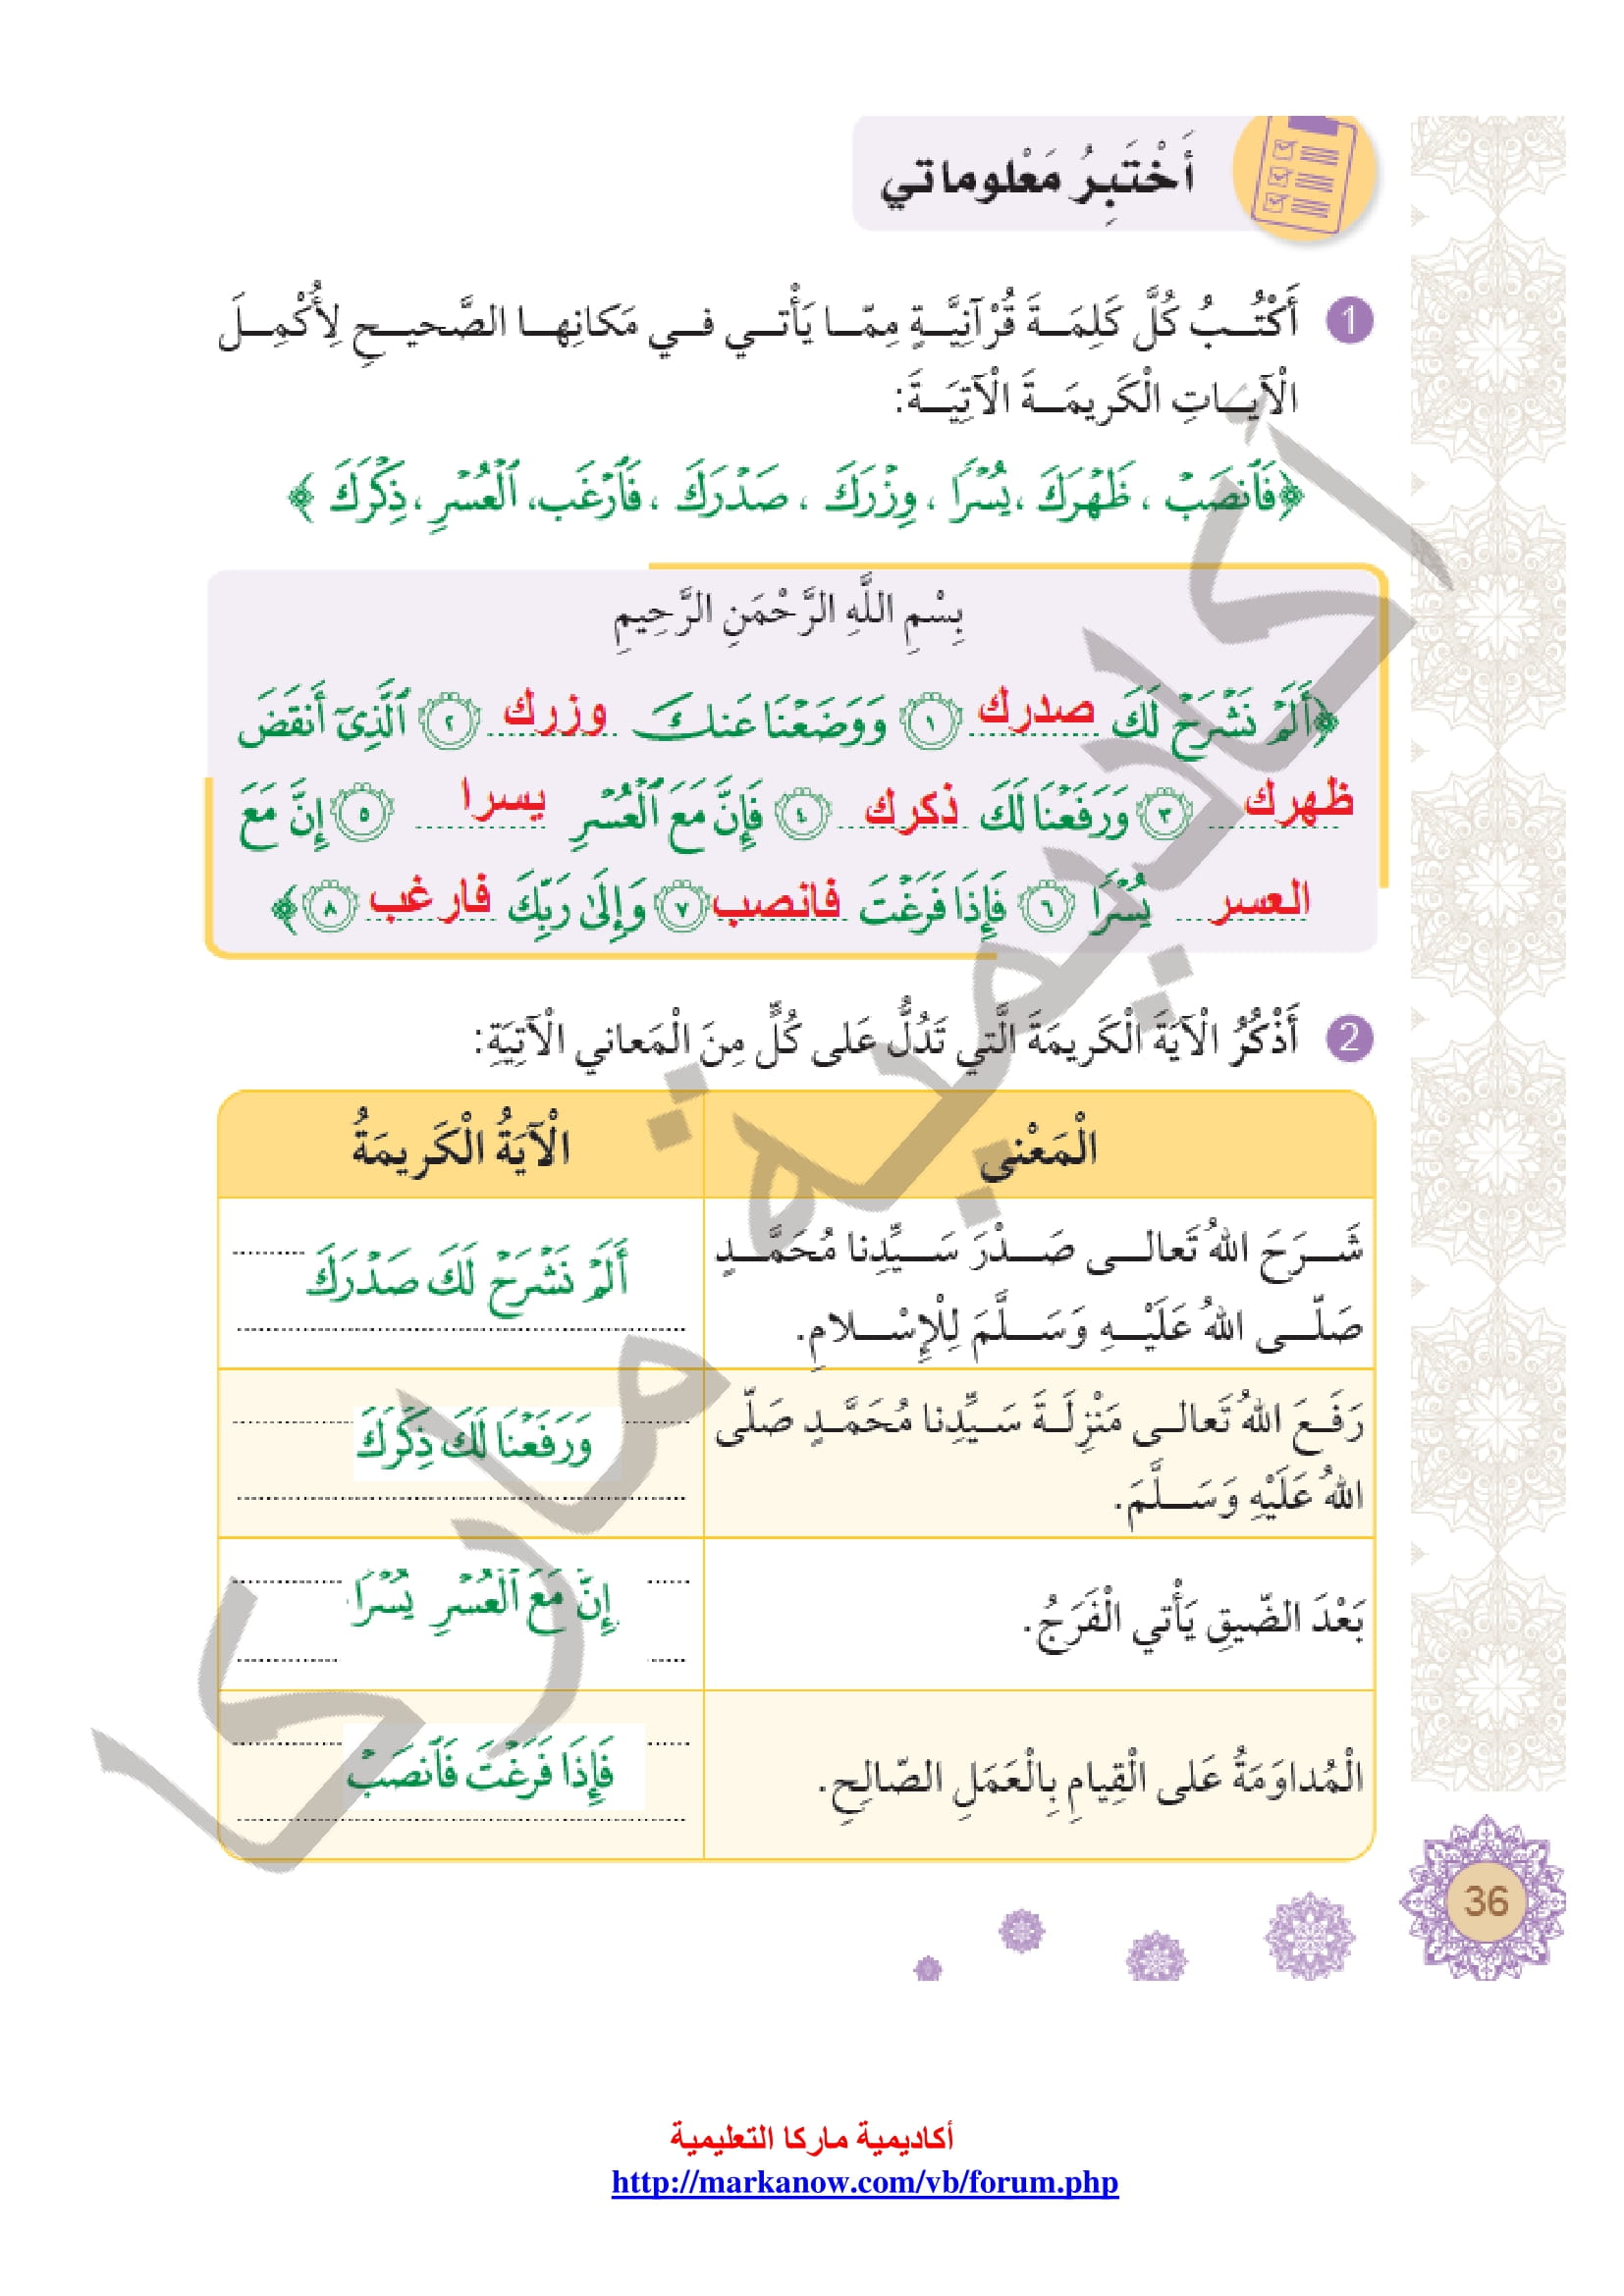 أَخْتَبِرُ مَعْلوماتي
1 أَكْتُـبُ كُلَّ كَلِمَـةَ قُرْآنِيَّـةٍ مِمّـا يَأْتـي فـي مَكانِهـا الصَّحيـحِ لِأُكْمِـلَ
الْآيـاتِ الْكَريمَـةَ الْآتِيَـةَ:
﴿فَٱنصَبۡ ، ظَهۡرَكَ ،يُسۡرًا ، وِزۡرَكَ ، صَدۡرَكَ ، فَٱرۡغَب، ٱلۡعُسۡرِ ، ذِكۡرَكَ ﴾
بِسْمِ اللَّهِ الرَّحْمَنِ الرَّحِيمِ
﴿أَلَمۡ نَشۡرَحۡ لَكَ صدرك ١ وَوَضَعۡنَا عَنكَ وزرك ٢ ٱلَّذِيٓ أَنقَضَ
ظهرك ٣ وَرَفَعۡنَا لَكَ ذكرك ٤ فَإِنَّ مَعَ ٱلۡعُسۡرِ يسرا ٥ إِنَّ مَعَ
العسر يُسۡرٗا ٦ فَإِذَا فَرَغۡتَ فانصب ٧ وَإِلَىٰ رَبِّكَ فارغب ٨ ﴾
2 أَذْكُرُ الْآيَةَ الْكَريمَةَ الَّتي تَدُلُّ عَلى كُلٍّ مِنَ الْمَعاني الْآتِيَةِ:
الْمَعْنى الْآيَةُ الْكَريمَةُ
شَـرَحَ اللهُ تَعالـى صَـدْرَ سَـيِّدِنا مُحَمَّـدٍ
صَلّـى اللهُ عَلَيْـهِ وَسَـلَّمَ لِلْإِسْـلامِ.
أَلَمۡ نَشۡرَحۡ لَكَ صَدۡرَكَ
رَفَـعَ اللهُ تَعالـى مَنْزِلَـةَ سَـيِّدِنا مُحَمَّـدٍ صَلّى
اللهُ عَلَيْهِ وَسَـلَّمَ.
وَرَفَعۡنَا لَكَ ذِكۡرَكَ
بَعْدَ الضّيقِ يَأْتي الْفَرَجُ.
إِنَّ مَعَ ٱلۡعُسۡرِ يُسۡرٗا
الْمُداوَمَةُ عَلى الْقِيامِ بِالْعَمَلِ الصّالِحِ.
فَإِذَا فَرَغۡتَ فَٱنصَبۡ
36
أكاديمية ماركا
أكاديمية ماركا التعليمية
http://markanow.com/vb/forum.php